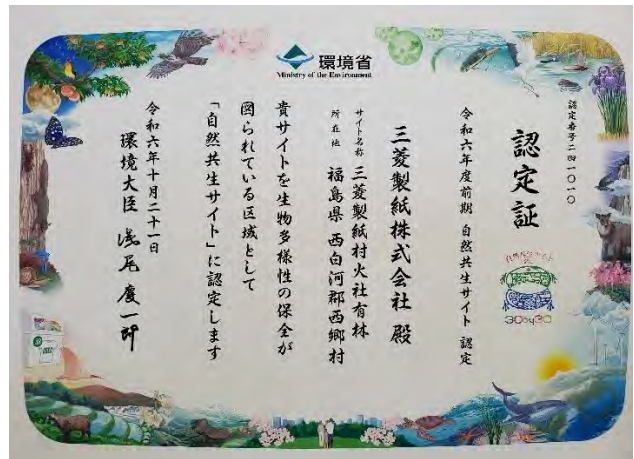 環境省
Ministry of the Environment
認定番号二四一〇一〇
認定証
自然共生サイト
30by30
令和六年度前期 自然共生サイト 認定
三菱製紙株式会社 殿
サイト名称 三菱製紙村火社有林
所在地 福島県 西白河郡西郷村
貴サイトを生物多様性の保全が
図られている区域として
「自然共生サイト」に認定します
令和六年十月二十一日
環境大臣 浅尾慶一郎